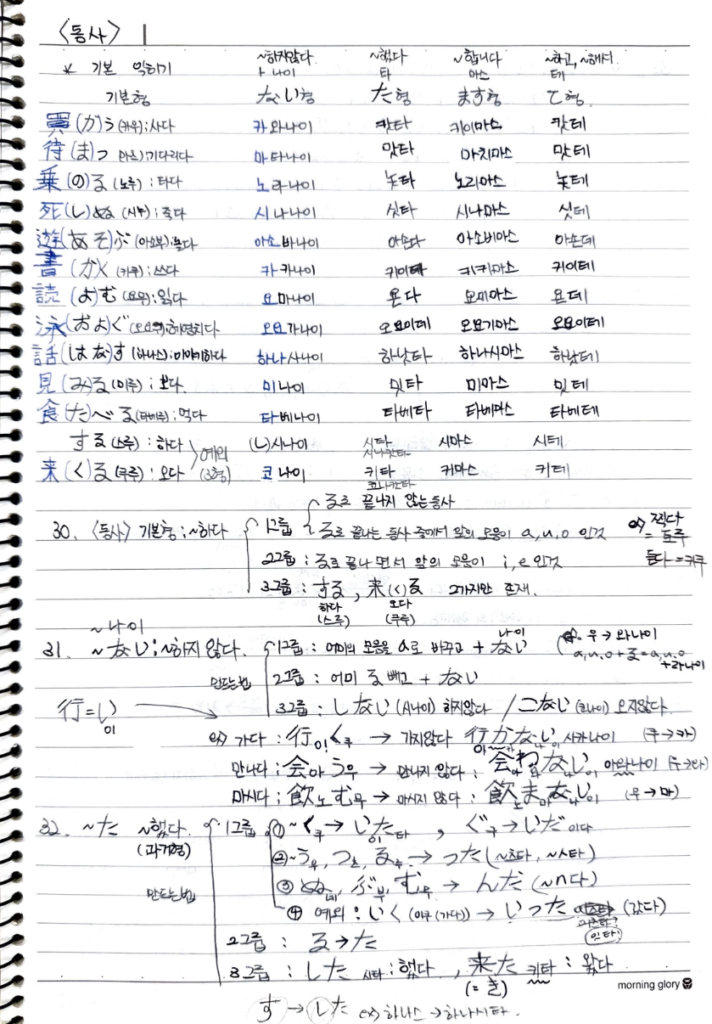 〈동사〉 1
* 기본 익히기 ~하지않다 ~했다 ~합니다 ~하고, ~해서
나이 타 마스 테
기본형 ない형 た형 ます형 て형
買(か)う(카우):사다 카와나이 캇타 카이마스 캇테
待(ま)つ(마츠):기다리다 마타나이 맛타 마치마스 맛테
乗(の)る(노루):타다 노라나이 놋타 노리마스 놋테
死(し)ぬ(시누):죽다 시나나이 싯타 시나마스 싯테
遊(あそ)ぶ(아소부):놀다 아소바나이 아손다 아소비마스 아손데
書(か)く(카쿠):쓰다 카카나이 카이타 카키마스 카이테
読(よ)む(요무):읽다 요마나이 욘다 요미마스 욘데
泳(およ)ぐ(오요구):헤엄치다 오요가나이 오요이데 오요기마스 오요이테
話(はな)す(하나스):이야기하다 하나사나이 하낫타 하나시마스 하낫테
見(み)る(미루):보다. 미나이 밋타 미마스 밋테
食(た)べる(타베루):먹다 타베나이 타베타 타베마스 타베테
する(스루):하다 예외 (し)시나이 시타 시마스 시테
来(く)る(쿠루):오다 (3형) 코나이 키타 키마스 키테
る로 끝나지 않는 동사
30. 〈동사〉 기본형 ; ~하다 1그룹 る로 끝나는 동사 중에서 앞의 모음이 a, u, o 인것 ex) 찍다
= 토루
2그룹 : る로 끝나면서 앞의 모음이 i, e 인것 듣다 = 키쿠
3그룹 : する, 来(く)る 2가지만 존재.
하다 오다
(스루) (쿠루)
~나이
31. ~ない:~하지않다. 1그룹 : 어미의 모음을 a로 바꾸고 + ない 나이 우 → 와나이
a, u, o + る = a, u, o + 라나이
만드는법 2그룹 : 어미 る 빼고 + ない
行=い 이 3그룹 : しない (시나이) 하지않다 / こない (코나이) 오지않다.
ex) 가다 : 行이く쿠 → 가지않다 行かない 이카나이 (쿠→카)
만나다 : 会아う우 → 만나지 않다 : 会わない 아와나이 (우→와)
마시다 : 飲노む무 → 마시지 않다 : 飲まない (무→마)
32. ~た ~했다. 1그룹 ① ~く쿠 → いた이타, ぐ구 → いだ이다
(과거형) ② ~う우, つ츠, る루 → った (~ㅅ타)
만드는법 ③ ぬ누, ぶ부, む무 → んだ (~n다)
④ 예외 : いく (이쿠 (가다)) → いった (갔다)
(잇타)
2그룹 : る→た
3그룹 : した 시타 : 했다, 来た 키타 : 왔다
(=き)
す → した ex) 하나스 → 하나시타.
morning glory